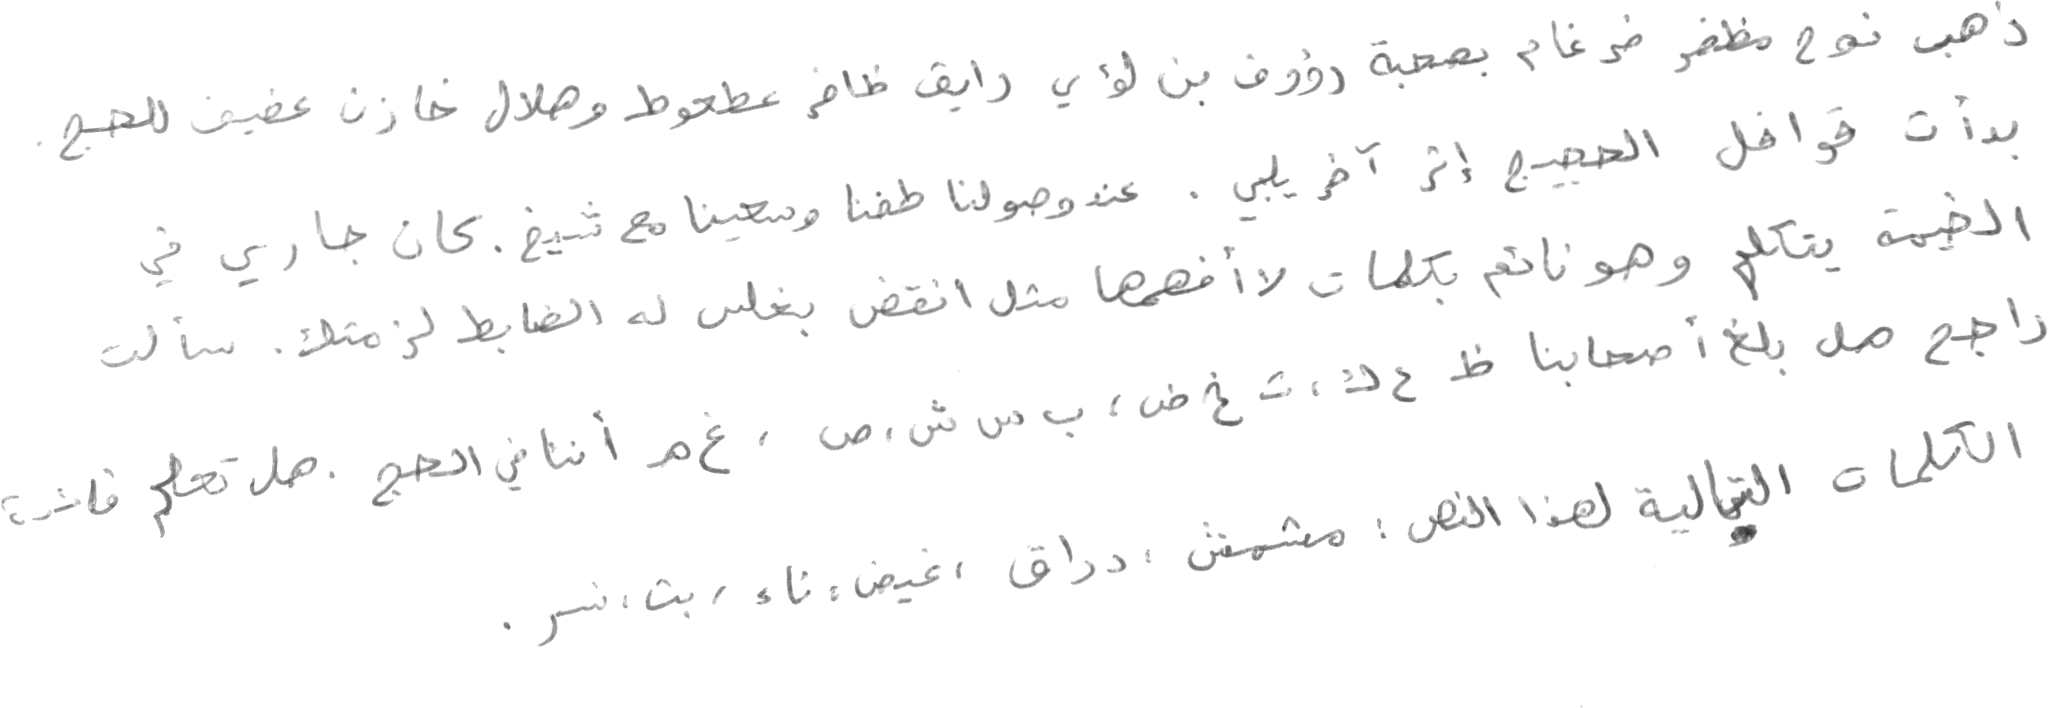 ذهب نوح مظفر ضرغام بصحبة رؤوف بن لؤي رايق ظافر عطعوط وهلال خازن عفيف للحج .
بدأت قوافل الحجيج إثر آخر يلبي . عند وصولنا طفنا وسعينا مع شيخ . كان جاري في
الخيمة يتكلم وهو نائم بكلمات لا أفهمها مثل انقض بغلس له الضابط لزمتك . سألت
راجح هل بلغ أصحابنا ظ ع ك ، ث خ ض ، ب س ش ، ص ، غ ه أننا في الحج . هل تعلم فائدة
الكلمات التالية لهذا النص : مشمش ، دراق ، غيض ، ناء ، بت ، نسر .